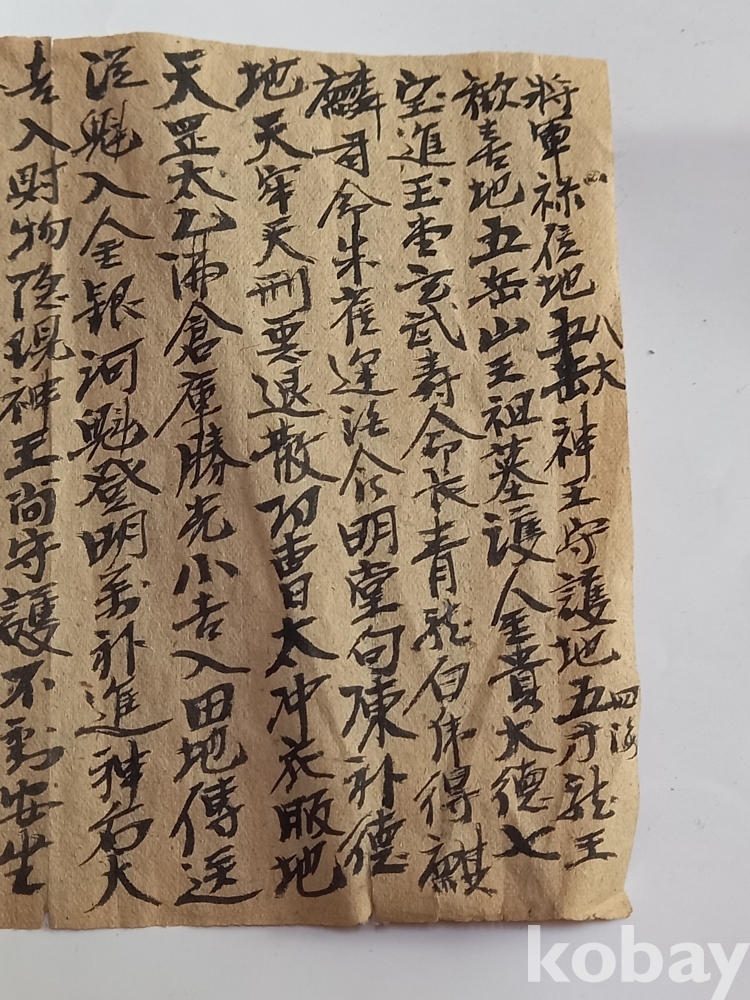 將軍祿位地五岳神王守護地五方龍王
八大
四海
歡喜地五岳山王祖墓護人至貴大德七
宝進玉堂玄武壽人命長青龍白虎得麒
麟司命朱雀運法食明堂句陳補德
地天牢天刑惡退散功曹日太冲衣服地
天罡太乙沸倉庫勝光小吉入田地傳送
從魁入金銀河魁登明羊补進神后大
吉入財物隐現神王尚守護不動安坐
kobay